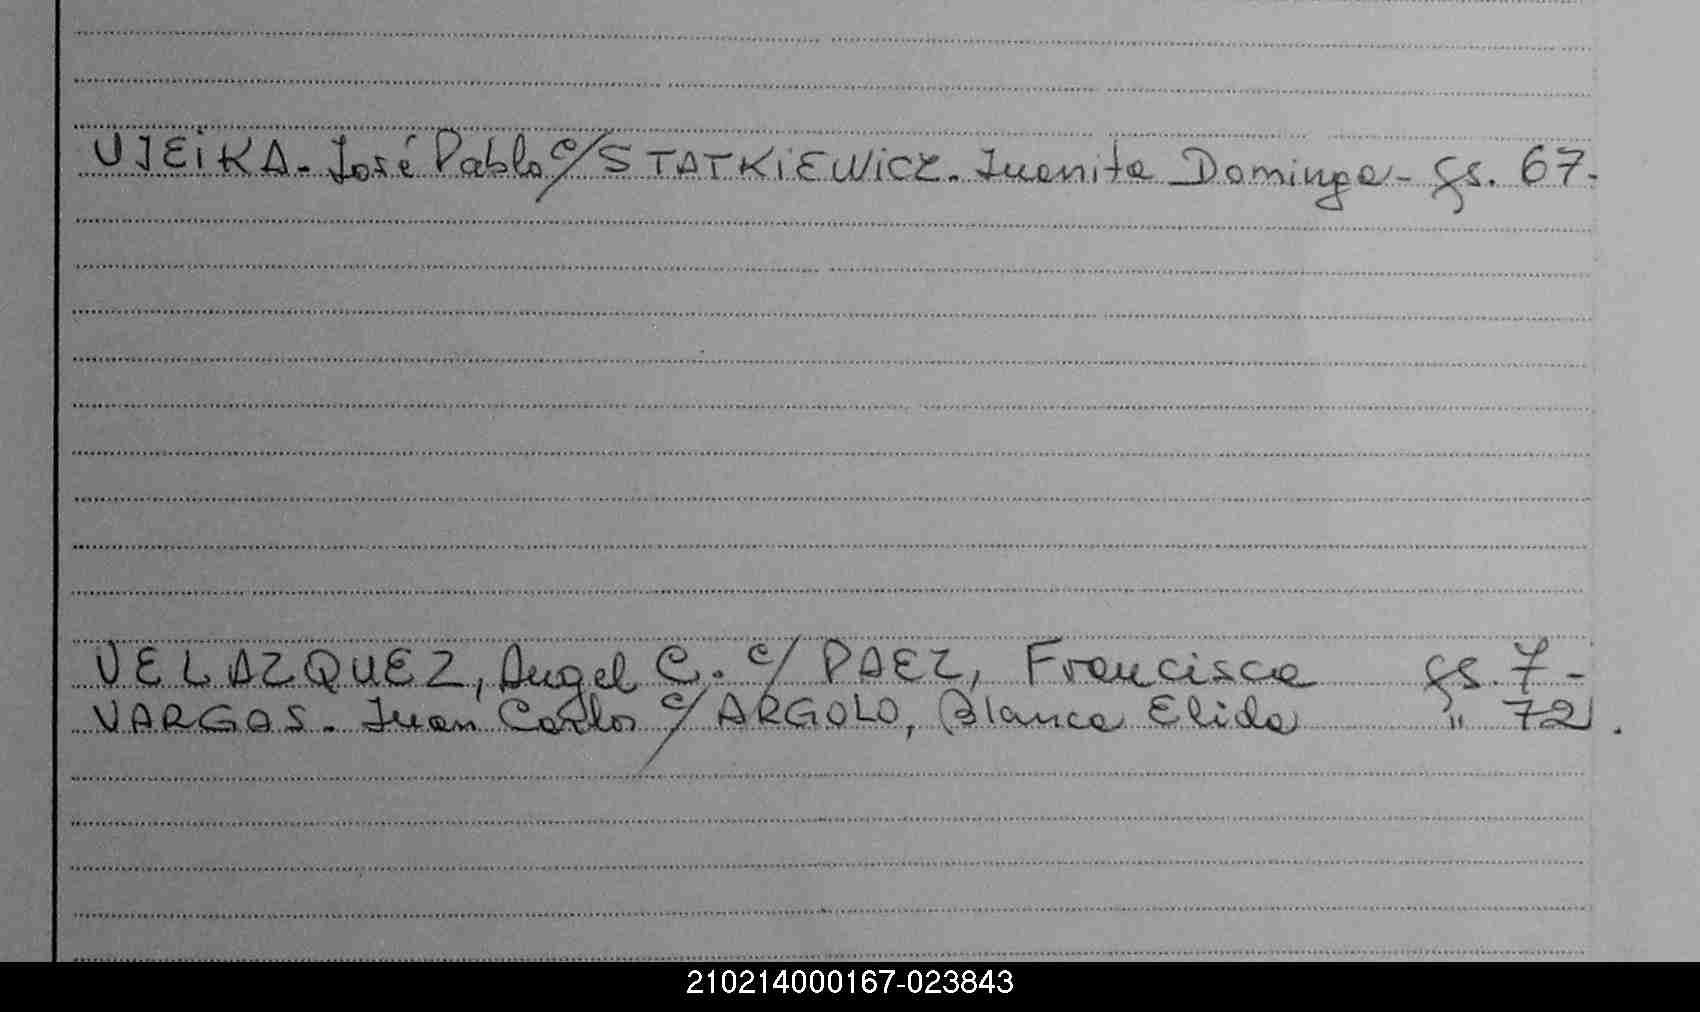 UJEiKA. José Pablo c/STATKiEWiCZ. Juanita Dominga- fs. 67-
VELAZQUEZ, Angel C. c/ PAEZ, Francisca fs. 7-
VARGAS. Juan Carlos c/ ARGOLO, Blanca Elida " 72.
210214000167-023843